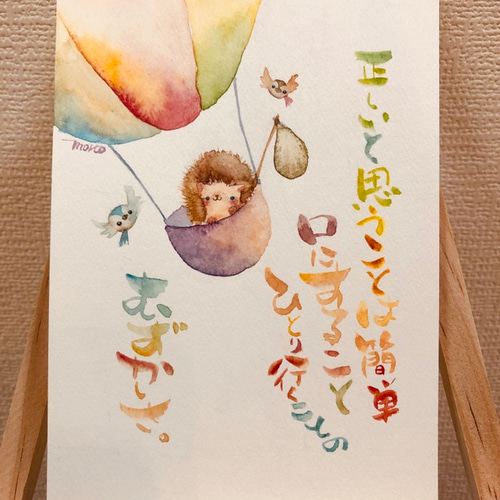 正しいと思うことは簡単
口にすること
ひとり行くことの
むずかしさ。
moreo